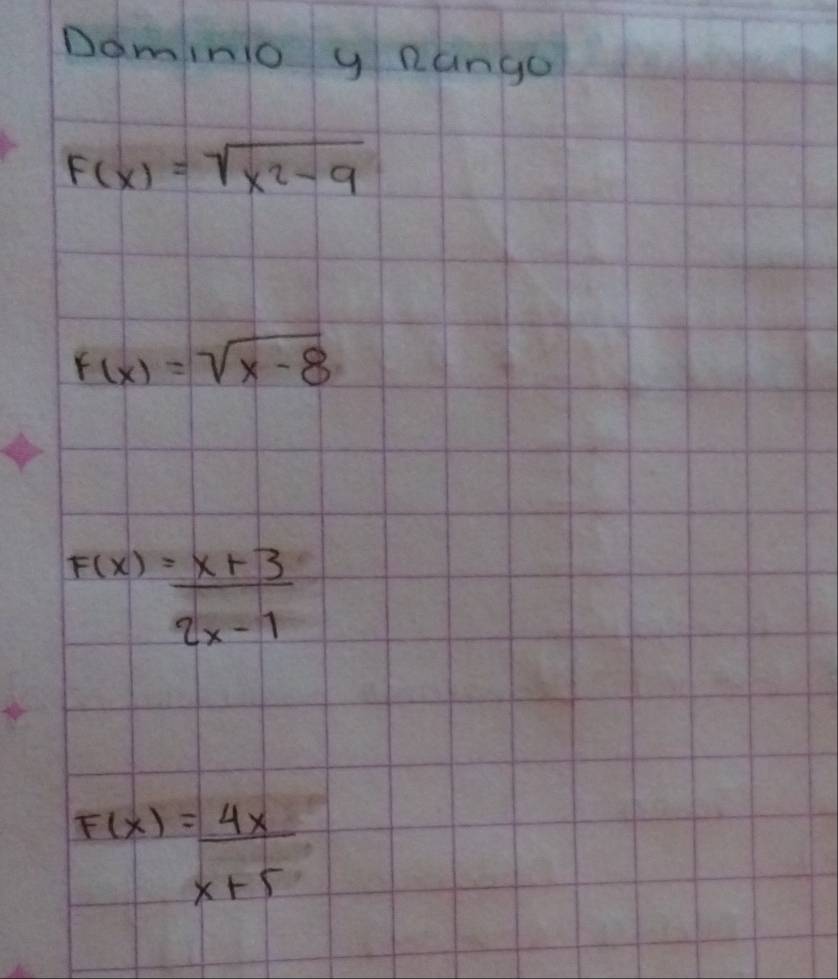 Dominio y Rango
F(x) = √x2-9
F(x) = √x-8
F(x) = x+3
2x-1
F(x) = 4x
x+5